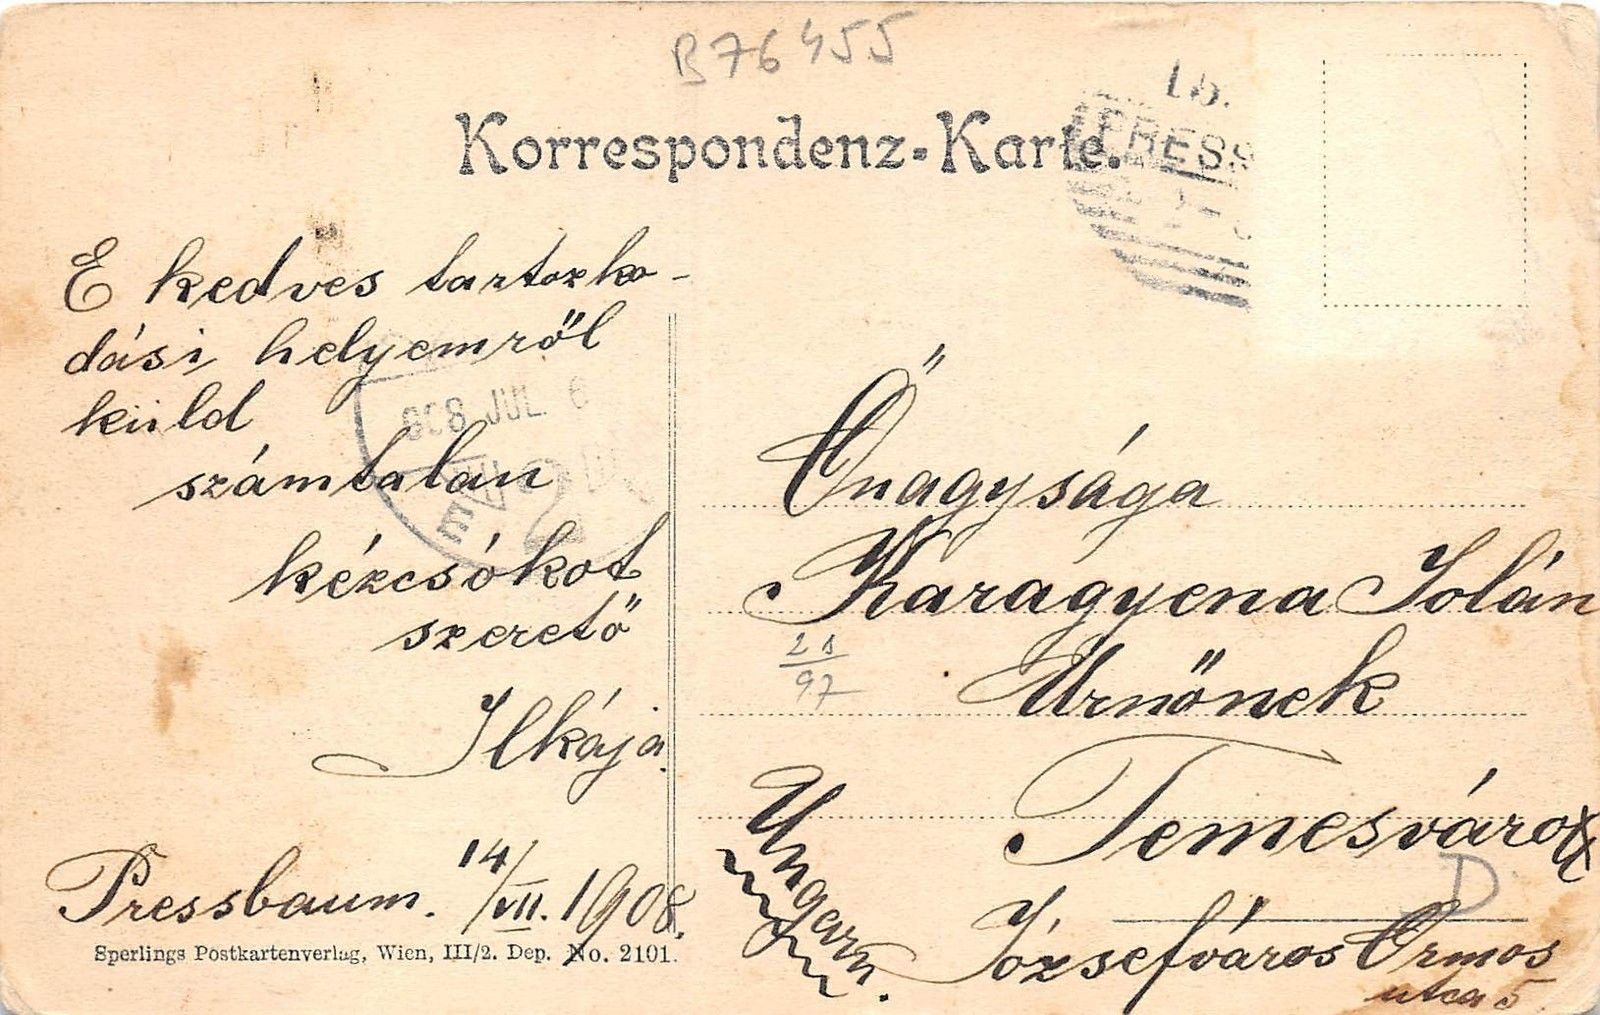 B76455
Korrespondenz-Karte.
15.
PRESS
E kedves tartozko-
dási helyemről
küld
számtalan
kézcsókot
szerető
Ilkája.
Pressbaum. 14/VII. 1908.
Sperlings Postkartenverlag, Wien, III/2. Dep. No. 2101.
908 JUL. 6
Őnagysága
Karagyena Jolán
Urnőnek
21
97
Temesvárott
D
Ungarn.
Józsefváros Ormos
utca 5